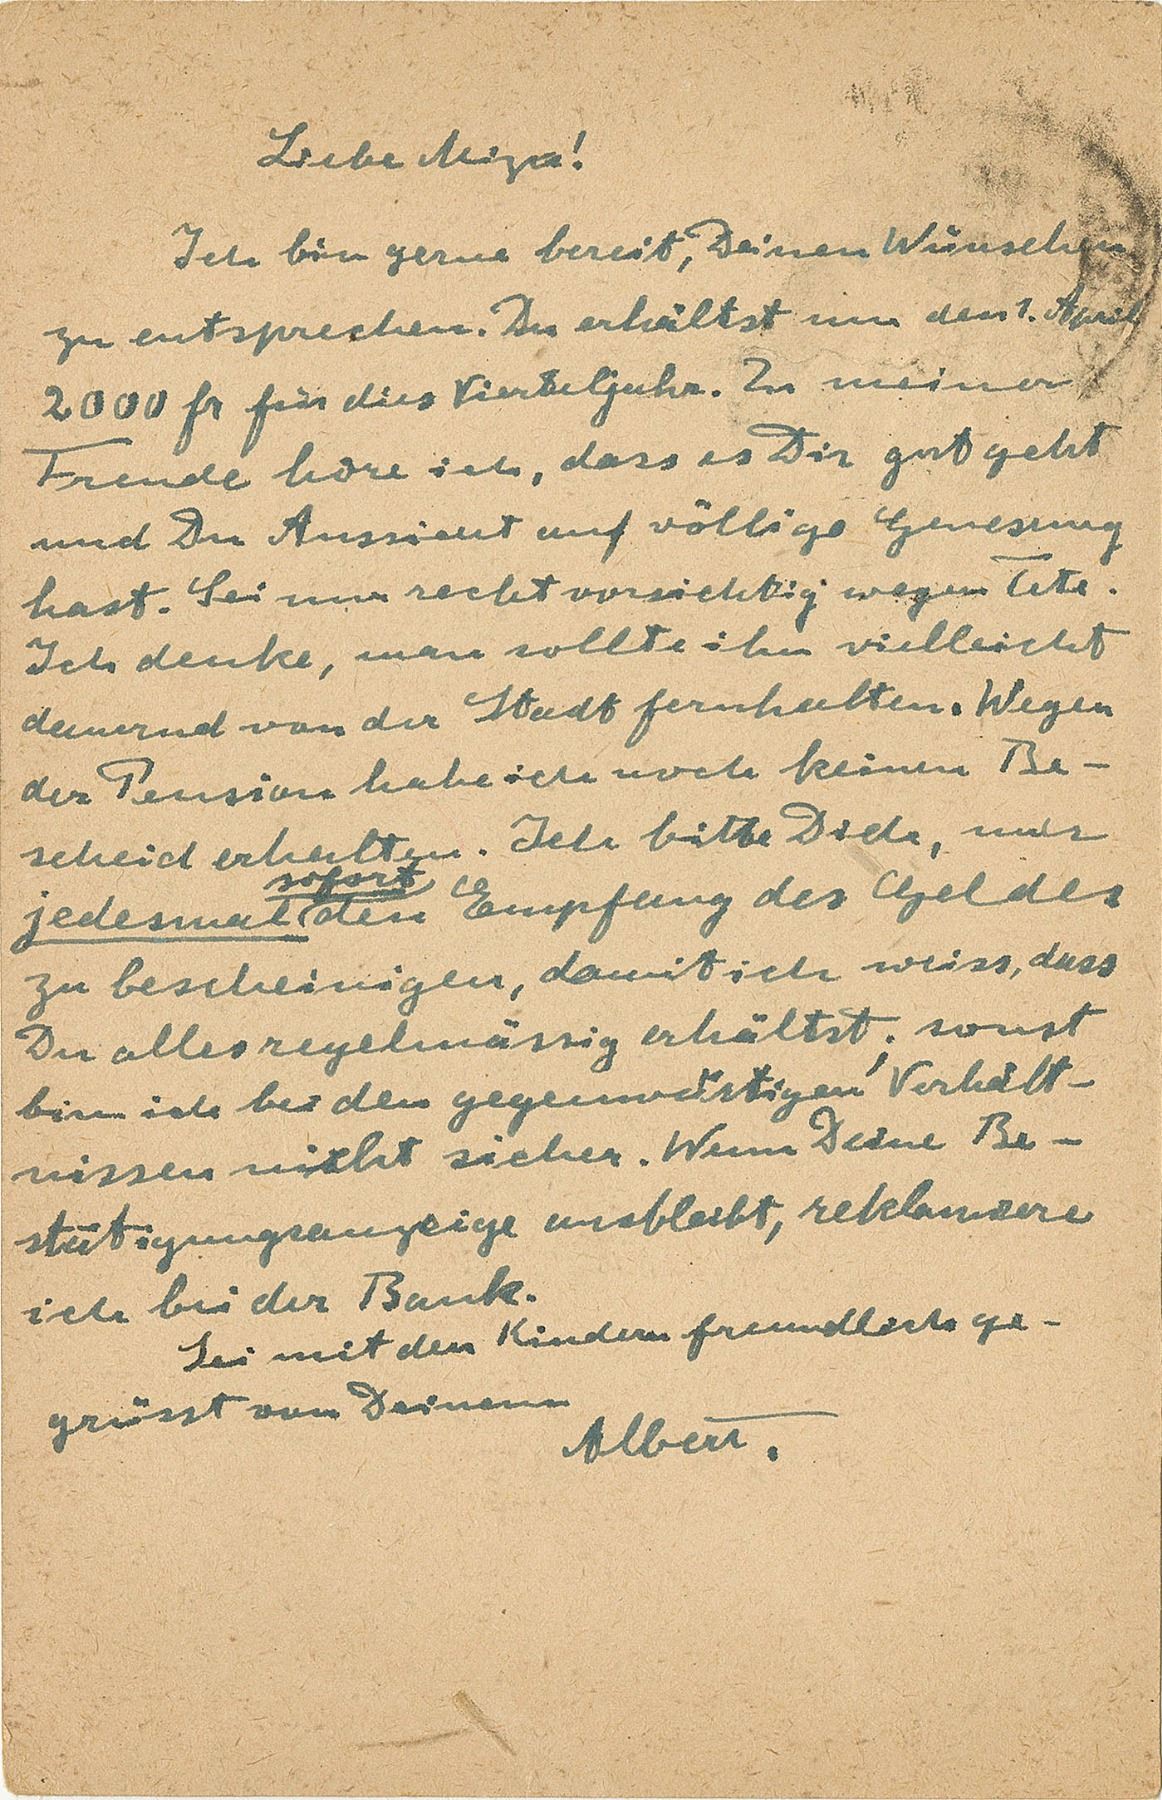 Liebe Miza!
Ich bin gerne bereit, Deinen Wünschen
zu entsprechen. Du erhältst um den 1. April
2000 fr für dies Vierteljahr. Zu meiner
Freude höre ich, dass es Dir gut geht
und Du Aussicht auf völlige Genesung
hast. Sei nur recht vorsichtig wegen Tete.
Ich denke, man sollte ihn vielleicht
dauernd von der Stadt fernhalten. Wegen
der Pension habe ich noch keinen Be-
scheid erhalten. Ich bitte Dich, mir
sofort
jedesmal den Empfang des Geldes
zu bescheinigen, damit ich weiss, dass
Du alles regelmässig erhältst; sonst
bin ich bei den gegenwärtigen Verhält-
nissen nicht sicher. Wenn Deine Be-
stätigungsanzeige ausbleibt, reklamiere
ich bei der Bank.
Sei mit den Kindern freundlich ge-
grüsst von Deinem
Albert.